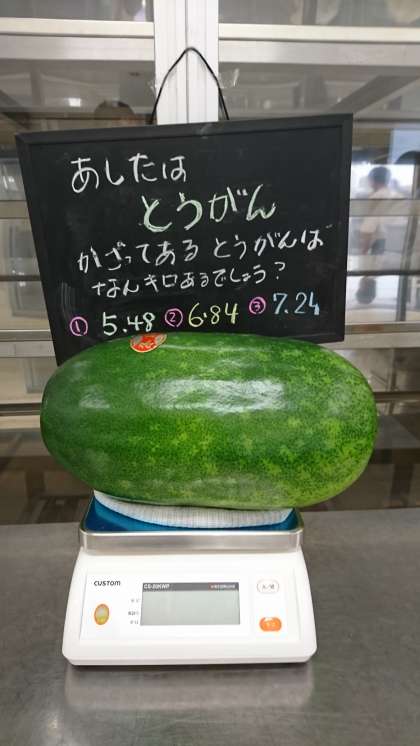 あしたは
とうがん
かざってある とうがんは
なんキロあるでしょう?
① 5.48 ② 6.84 ③ 7.24
CUSTOM
CS-20KWP